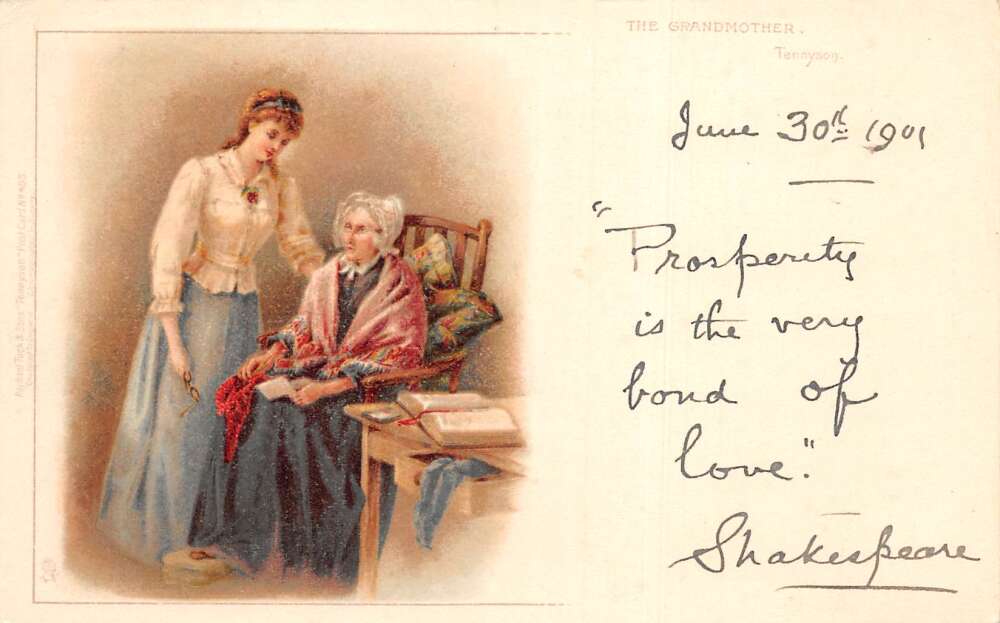 THE GRANDMOTHER.
Tennyson.
June 30th 1901
"Prosperity
is the very
bond of
love."
Shakespeare
Raphael Tuck & Sons' "Tennyson" Post Card No